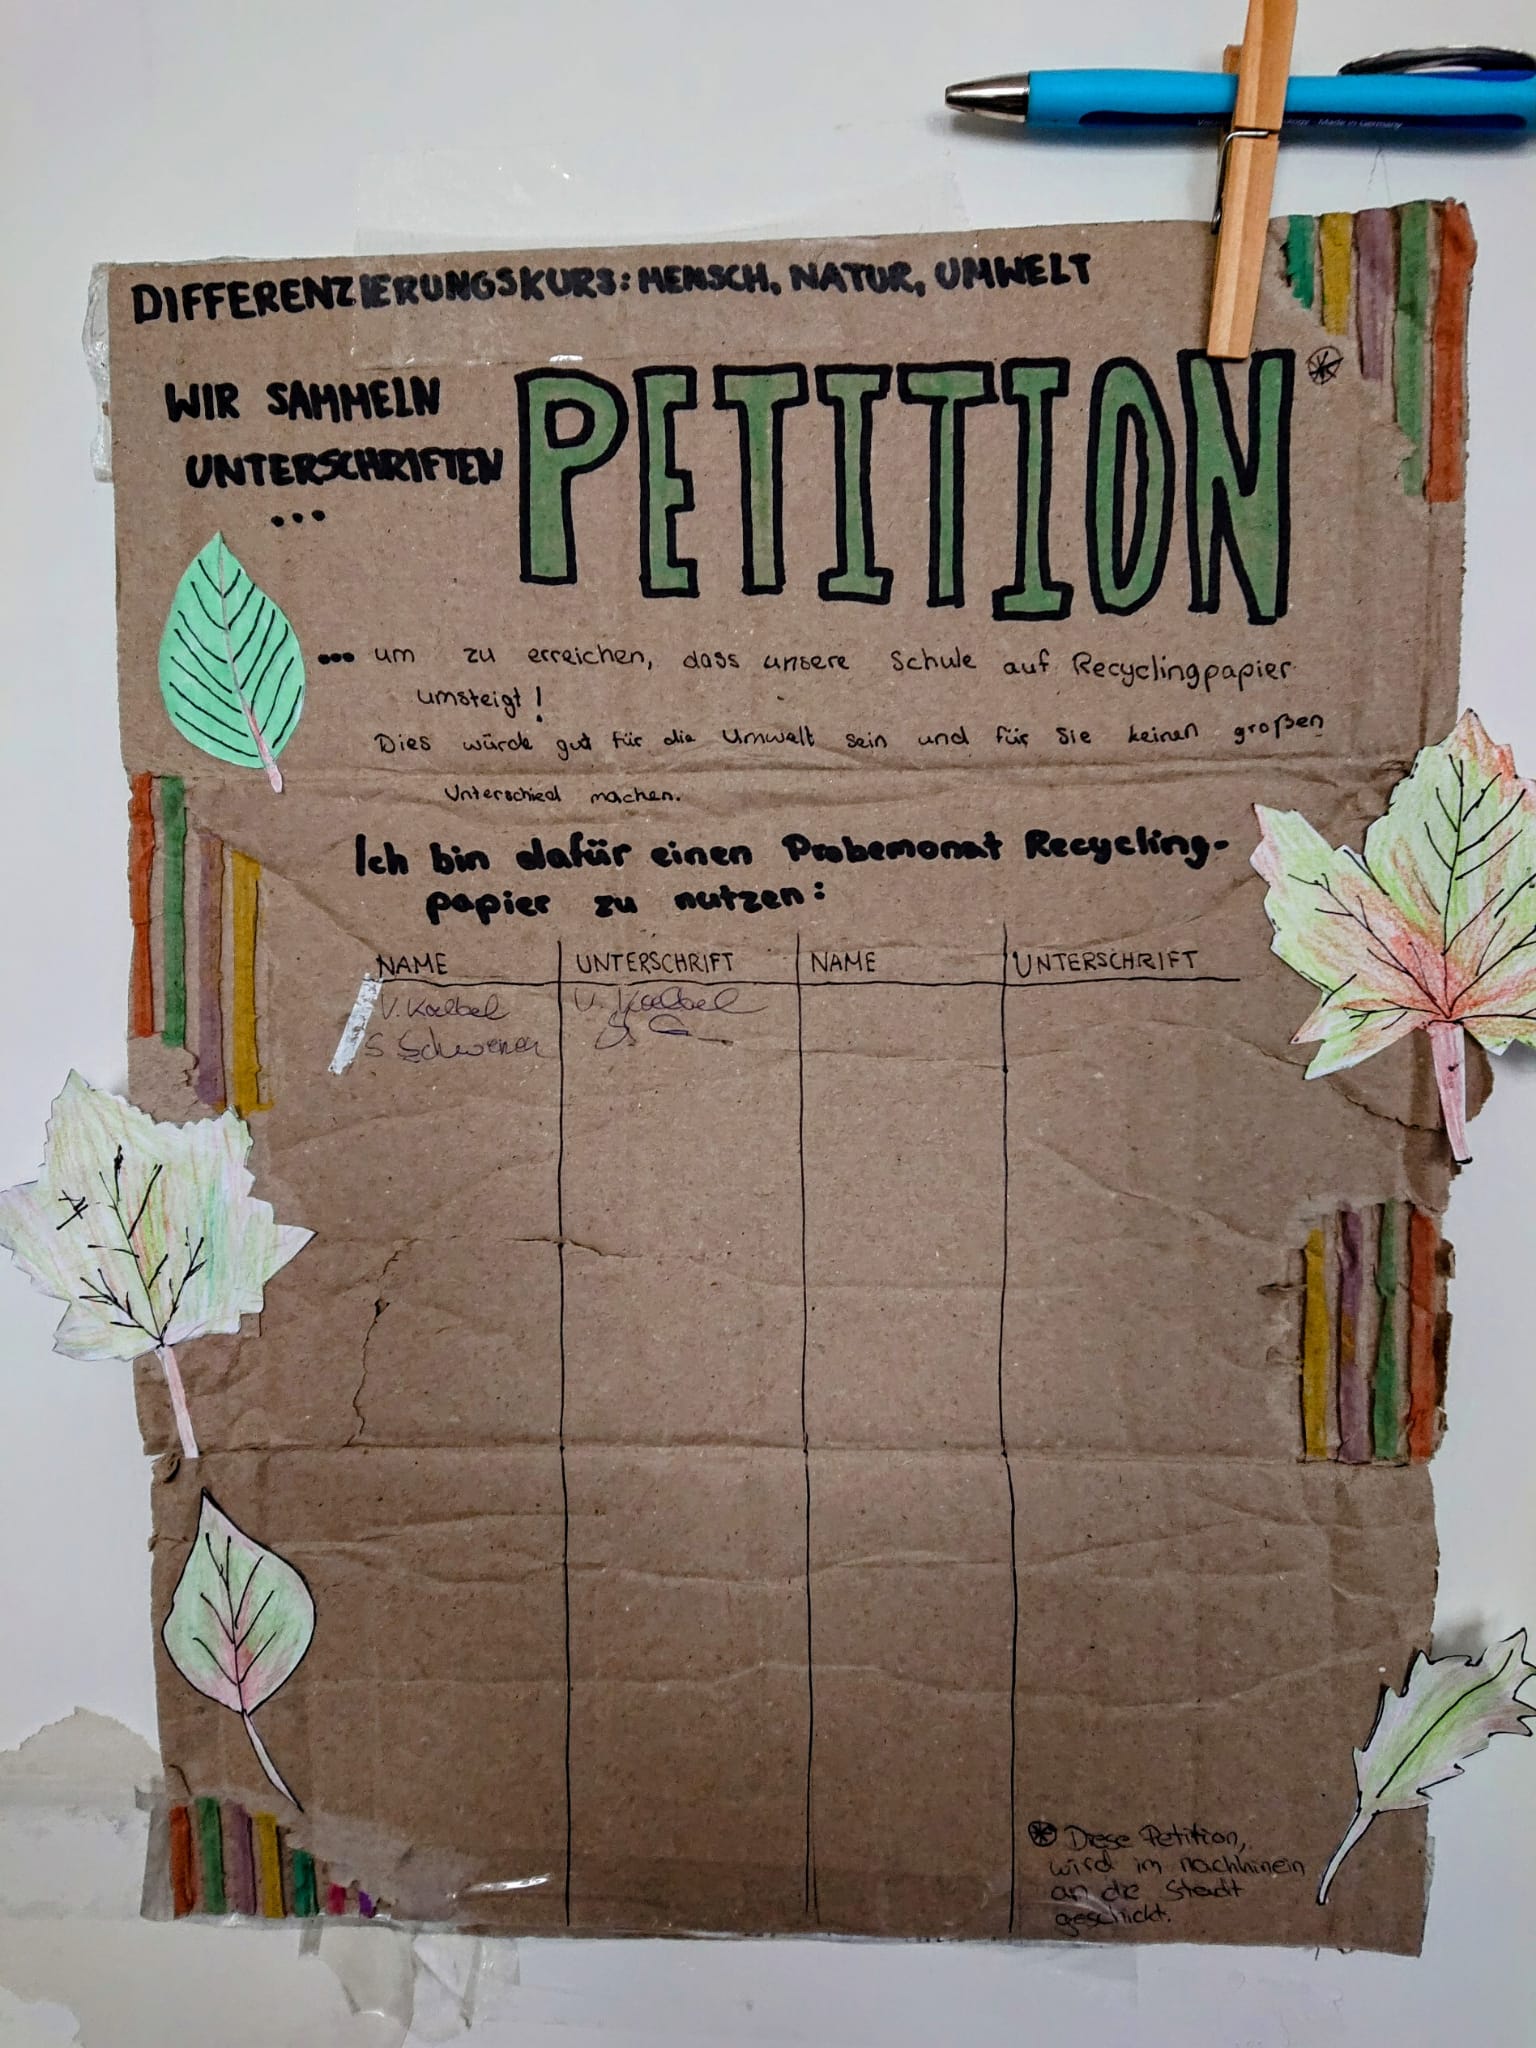 Made in Germany
DIFFERENZIERUNGSKURS: MENSCH, NATUR, UMWELT
WIR SAMMELN
UNTERSCHRIFTEN
...
PETITION*
... um zu erreichen, dass unsere Schule auf Recyclingpapier
umsteigt!
Dies würde gut für die Umwelt sein und für Sie keinen großen
Unterschied machen.
Ich bin dafür einen Probemonat Recycling-
papier zu nutzen:
NAME UNTERSCHRIFT NAME UNTERSCHRIFT
V. Kaelbel V. Kaelbel
S
* Diese Petition,
wird im nachhinein
an die Stadt
geschickt.